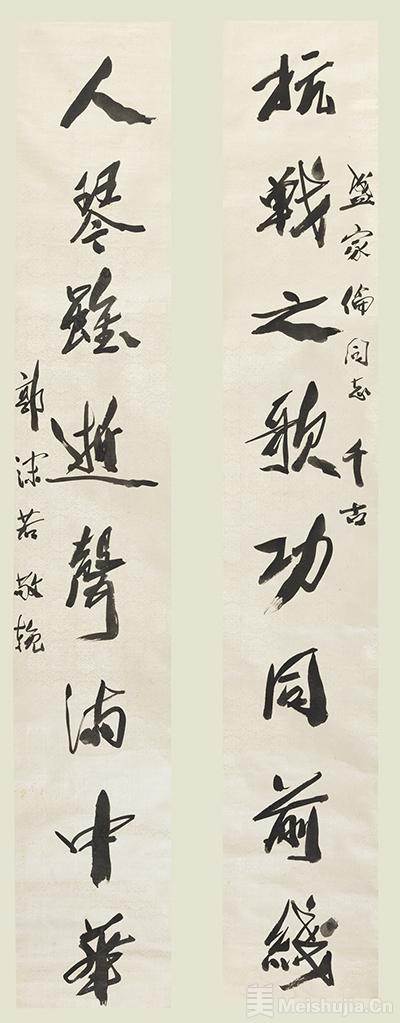 盛家倫同志千古
抗戰之歌功同前綫
人琴雖逝聲滿中華
郭沫若敬輓
美 Meishujia.Cn